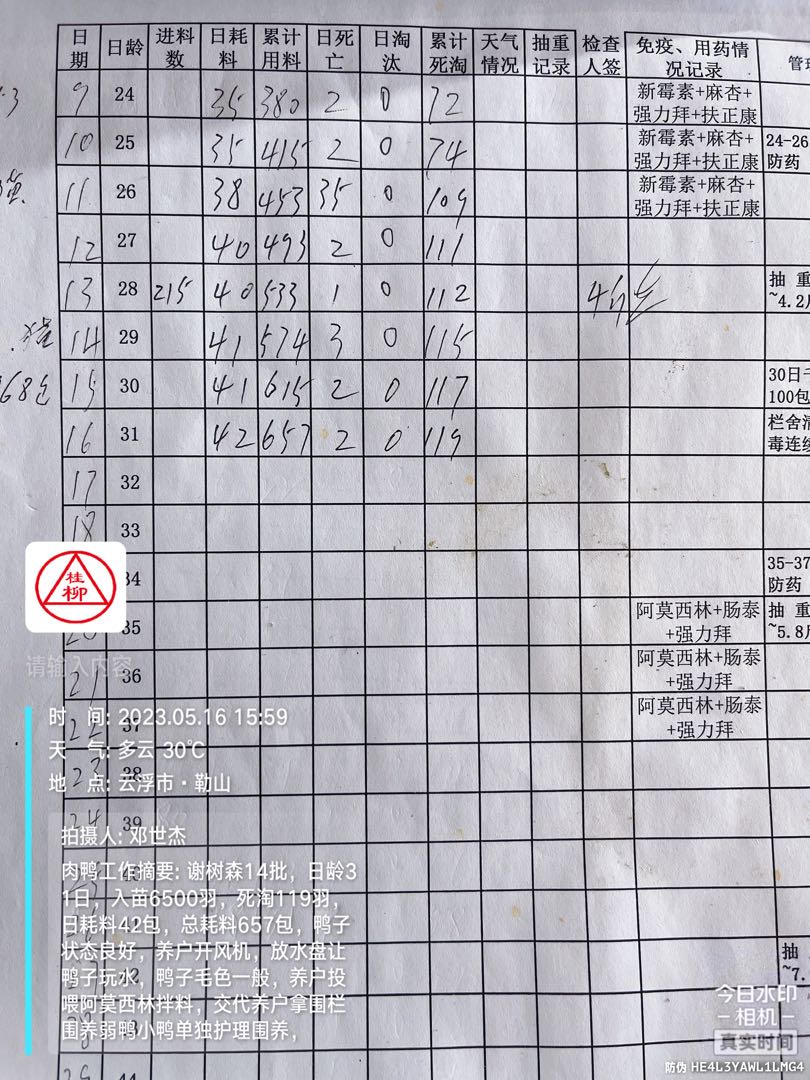 日期 日龄 进料数 日耗料 累计用料 日死亡 日淘汰 累计死淘 天气情况 抽重记录 检查人签 免疫、用药情况记录 管
9 24 35 380 2 0 72 新霉素+麻杏+强力拜+扶正康
10 25 35 415 2 0 74 新霉素+麻杏+强力拜+扶正康 24-26 防药
11 26 38 453 35 0 109 新霉素+麻杏+强力拜+扶正康
12 27 40 493 2 0 111
13 28 215 40 533 1 0 112 抽 重 ~4.2
14 29 41 574 3 0 115
15 30 41 615 2 0 117 30日 100包
16 31 42 657 2 0 119 栏舍 毒连续
17 32
18 33
34 35-37 防药
35 阿莫西林+肠泰+强力拜 抽 重 ~5.8
21 36 阿莫西林+肠泰+强力拜
22 37 阿莫西林+肠泰+强力拜
23 38
24 39
抽
~7.
44
桂柳
请输入内容
时 间: 2023.05.16 15:59
天 气: 多云 30℃
地 点: 云浮市·勒山
拍摄人: 邓世杰
肉鸭工作摘要: 谢树森14批，日龄3
1日，入苗6500羽，死淘119羽，
日耗料42包，总耗料657包，鸭子
状态良好，养户开风机，放水盘让
鸭子玩水，鸭子毛色一般，养户投
喂阿莫西林拌料，交代养户拿围栏
围养弱鸭小鸭单独护理围养，
今日水印
-相机-
真实时间
防伪 HE4L3YAWL1LMG4